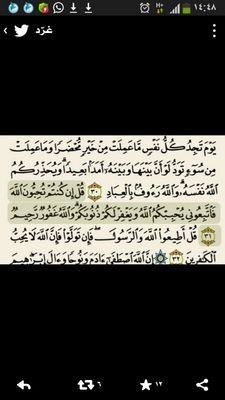 ١٤:٤٨
غرّد
يَوْمَ تَجِدُ كُلُّ نَفْسٍ مَّا عَمِلَتْ مِنْ خَيْرٍ مُّحْضَرًا وَمَا عَمِلَتْ
مِن سُوٓءٍ تَوَدُّ لَوْ أَنَّ بَيْنَهَا وَبَيْنَهُۥٓ أَمَدًۢا بَعِيدًا ۗ وَيُحَذِّرُكُمُ
ٱللَّهُ نَفْسَهُۥ ۗ وَٱللَّهُ رَءُوفٌۢ بِٱلْعِبَادِ ٣٠ قُلْ إِن كُنتُمْ تُحِبُّونَ ٱللَّهَ
فَٱتَّبِعُونِى يُحْبِبْكُمُ ٱللَّهُ وَيَغْفِرْ لَكُمْ ذُنُوبَكُمْ ۗ وَٱللَّهُ غَفُورٌ رَّحِيمٌ
٣١ قُلْ أَطِيعُوا۟ ٱللَّهَ وَٱلرَّسُولَ ۖ فَإِن تَوَلَّوْا۟ فَإِنَّ ٱللَّهَ لَا يُحِبُّ
ٱلْكَٰفِرِينَ ٣٢ ۞ إِنَّ ٱللَّهَ ٱصْطَفَىٰٓ ءَادَمَ وَنُوحًا وَءَالَ إِبْرَٰهِيمَ
٦
١٢